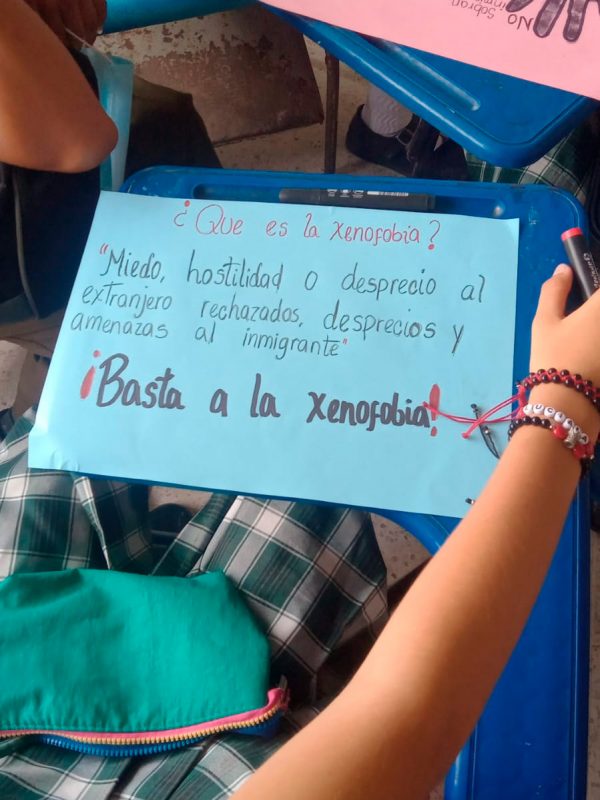 No
Sobran
¿Que es la xenofobia?
"Miedo, hostilidad o desprecio al
extranjero rechazados, desprecios y
amenazas al inmigrante"
¡Basta a la xenofobia!